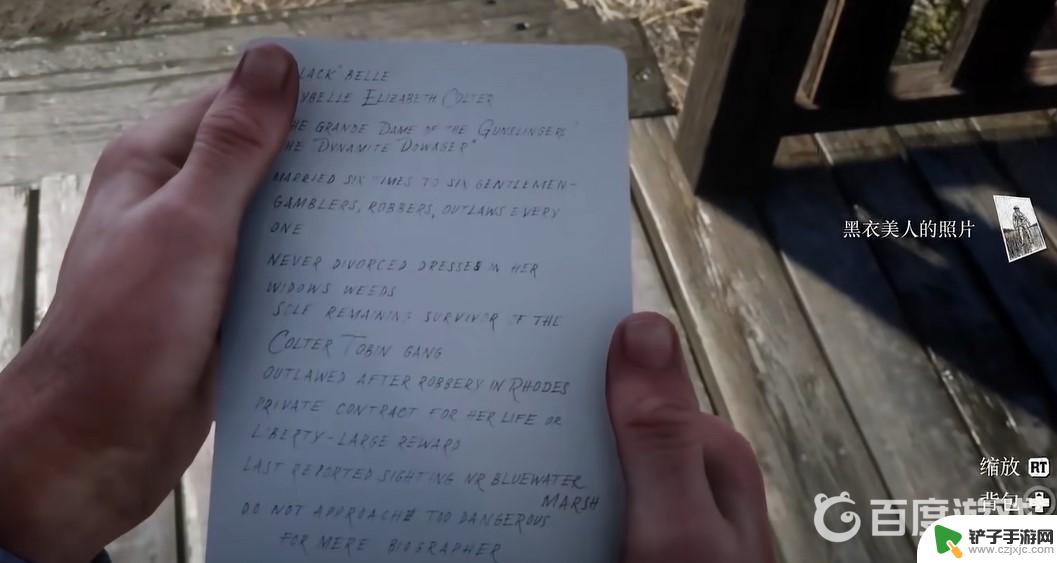 LACK" BELLE
YBELLE ELIZABETH COLTER
HE GRANDE DAME OF THE GUNSLINGERS"
HE "DYNAMITE DOWAGER"
MARRIED SIX TIMES TO SIX GENTLEMEN-
GAMBLERS, ROBBERS, OUTLAWS EVERY
ONE
NEVER DIVORCED DRESSES IN HER
WIDOWS WEEDS
SOLE REMAINING SURVIVOR OF THE
COLTER TOBIN GANG
OUTLAWED AFTER ROBBERY IN RHODES
PRIVATE CONTRACT FOR HER LIFE OR
LIBERTY-LARGE REWARD
LAST REPORTED SIGHTING NR BLUEWATER
MARSH
DO NOT APPROACH TOO DANGEROUS
FOR MERE BIOGRAPHER
黑衣美人的照片
缩放 RT
背包
百度游戏
铲子手游网
www.czjxjc.com